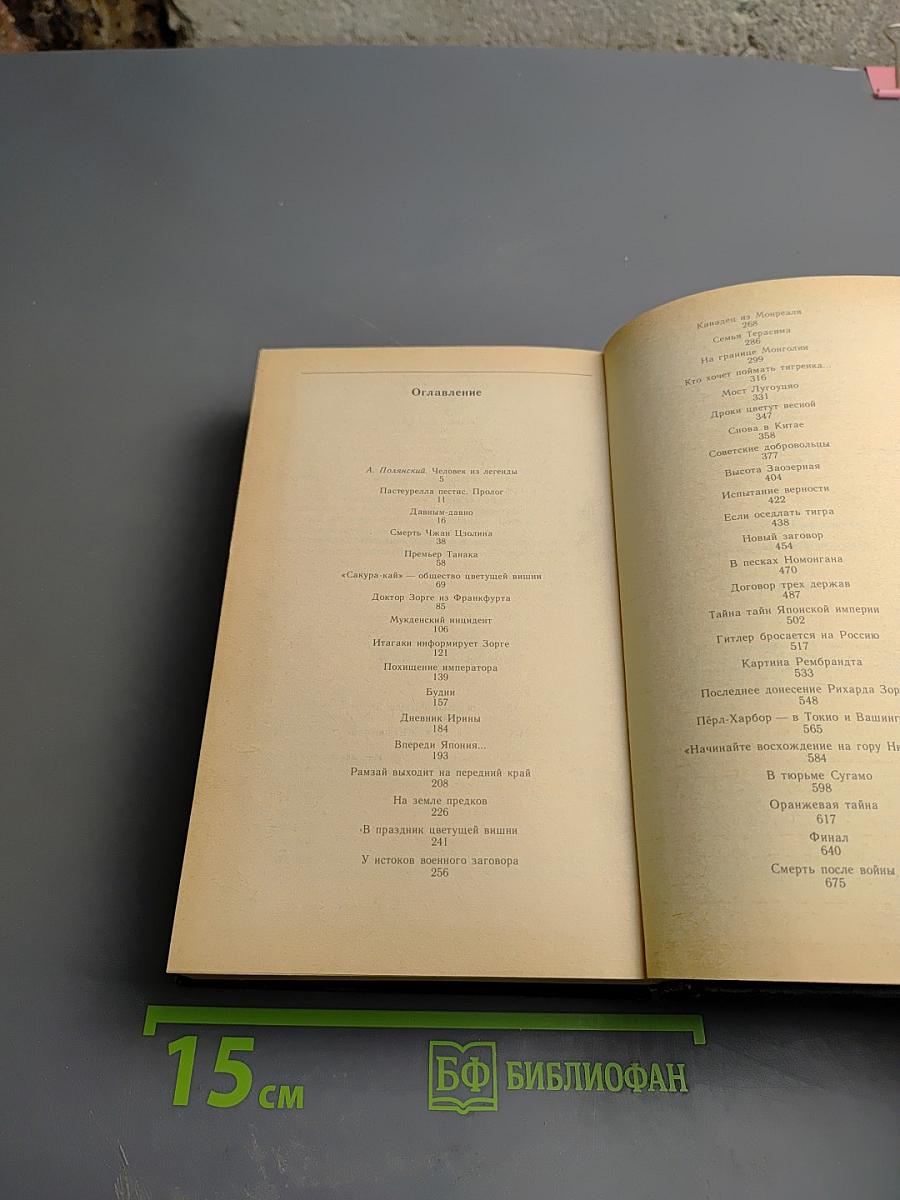 Оглавление
А. Полянский. Человек из легенды
5
Пастеурелла пестис. Пролог
11
Давным-давно
16
Смерть Чжан Цзолина
38
Премьер Танака
58
«Сакура-кай» — общество цветущей вишни
69
Доктор Зорге из Франкфурта
85
Мукденский инцидент
106
Итагаки информирует Зорге
121
Похищение императора
139
Будни
157
Дневник Ирины
184
Впереди Япония...
193
Рамзай выходит на передний край
208
На земле предков
226
В праздник цветущей вишни
241
У истоков военного заговора
256
Канадец из Монреаля
268
Семья Терасима
286
На границе Монголии
299
Кто хочет поймать тигренка...
316
Мост Лугоуцяо
331
Дроки цветут весной
347
Снова в Китае
358
Советские добровольцы
377
Высота Заозерная
404
Испытание верности
422
Если оседлать тигра
438
Новый заговор
454
В песках Номонгана
470
Договор трех держав
487
Тайна тайн Японской империи
502
Гитлер бросается на Россию
517
Картина Рембрандта
533
Последнее донесение Рихарда Зор
548
Пёрл-Харбор — в Токио и Вашинг
565
«Начинайте восхождение на гору Ни
584
В тюрьме Сугамо
598
Оранжевая тайна
617
Финал
640
Смерть после войны
675
15 см
БФ БИБЛИОФАН